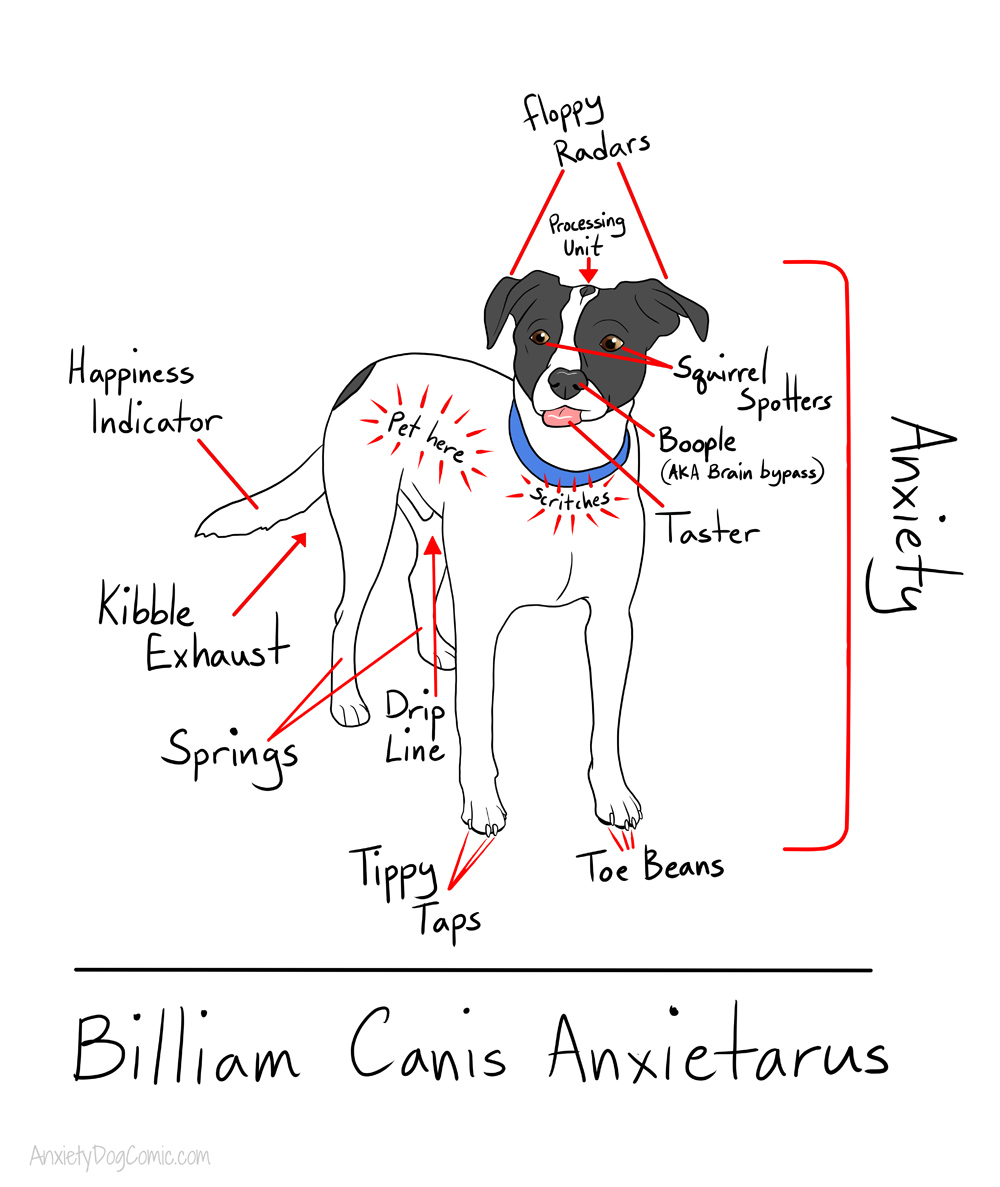 floppy
Radars
Processing
Unit
Happiness
Indicator
Squirrel
Spotters
Pet here
Boople
(AKA Brain bypass)
Scritches
Taster
Anxiety
Kibble
Exhaust
Springs
Drip
Line
Tippy
Taps
Toe Beans
Billiam Canis Anxietarus
AnxietyDogComic.com